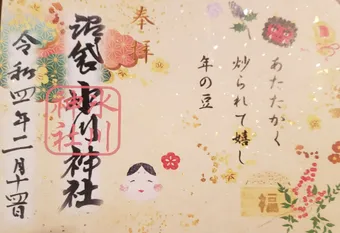 あたたかく
炒られて嬉し
年の豆
福
奉拝
沼袋氷川神社
氷川
神社
令和四年二月十四日